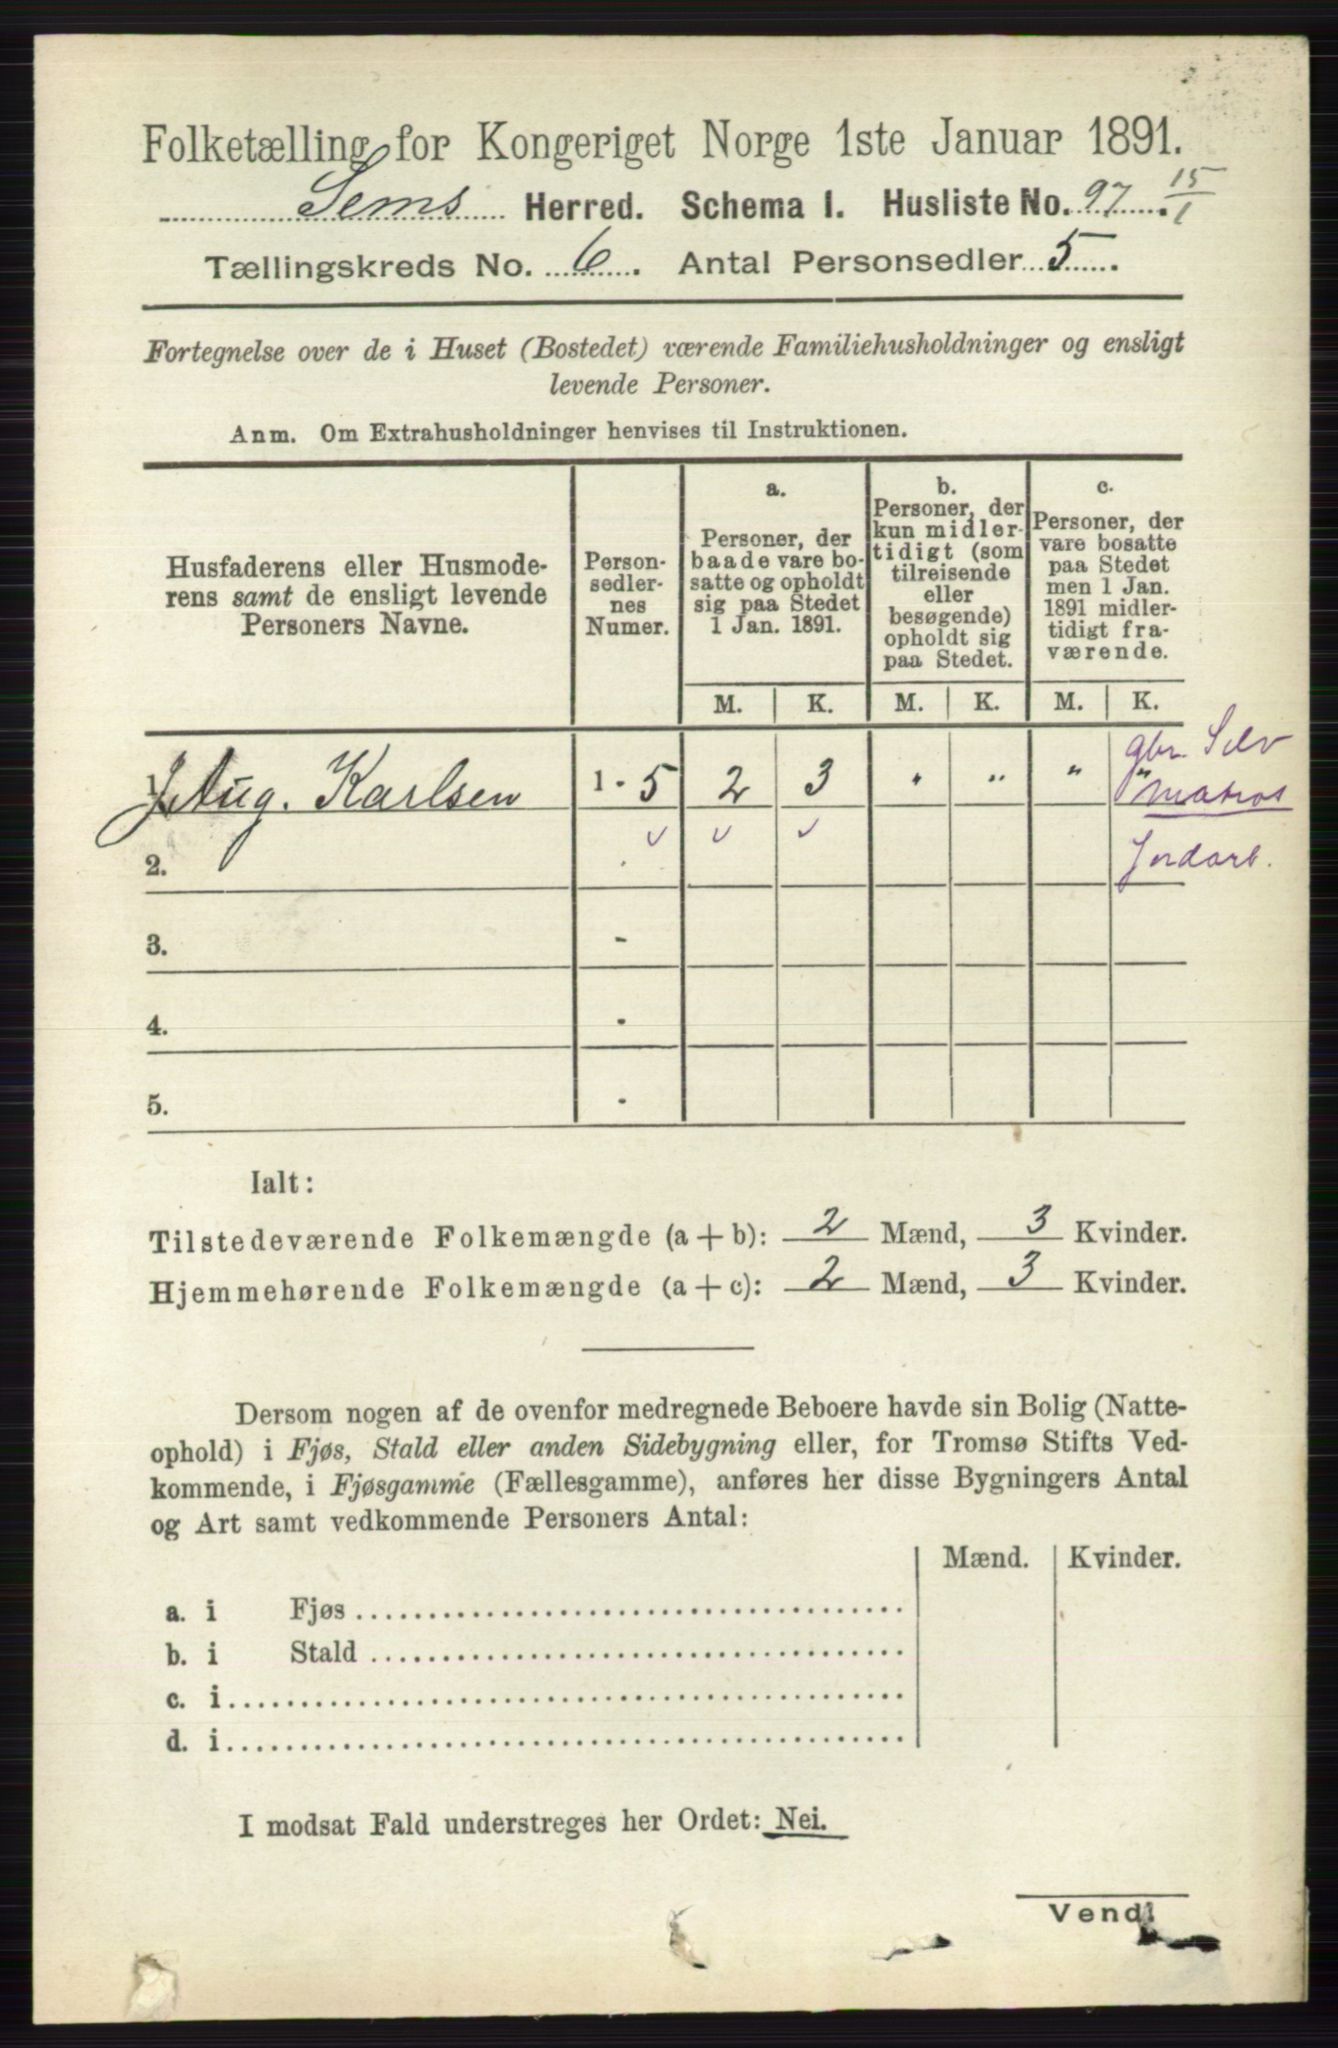 Folketælling for Kongeriget Norge 1ste Januar 1891.
Sems Herred. Schema I. Husliste No. 97. 15/1
Tællingskreds No. 6. Antal Personsedler 5.
Fortegnelse over de i Huset (Bostedet) værende Familiehusholdninger og ensligt
levende Personer.
Anm. Om Extrahusholdninger henvises til Instruktionen.
Husfaderens eller Husmode-
rens samt de ensligt levende
Personers Navne.
Person-
sedler-
nes
Numer.
a.
Personer, der
baade vare bo-
satte og opholdt
sig paa Stedet
1 Jan. 1891.
b.
Personer, der
kun midler-
tidigt (som
tilreisende
eller
besøgende)
opholdt sig
paa Stedet.
c.
Personer, der
vare bosatte
paa Stedet
men 1 Jan.
1891 midler-
tidigt fra-
værende.
M. K. M. K. M. K.
J. Aug. Karlsen 1 - 5 2 3 " " " "
gbr. Selv
matros
Jordarb.
2.
3. -
4. -
5. -
Ialt:
Tilstedeværende Folkemængde (a + b): 2 Mænd, 3 Kvinder.
Hjemmehørende Folkemængde (a + c): 2 Mænd, 3 Kvinder.
Dersom nogen af de ovenfor medregnede Beboere havde sin Bolig (Natte-
ophold) i Fjøs, Stald eller anden Sidebygning eller, for Tromsø Stifts Ved-
kommende, i Fjøsgamme (Fællesgamme), anføres her disse Bygningers Antal
og Art samt vedkommende Personers Antal:
Mænd. Kvinder.
a. i Fjøs
b. i Stald
c. i
d. i
I modsat Fald understreges her Ordet: Nei.
Vend!